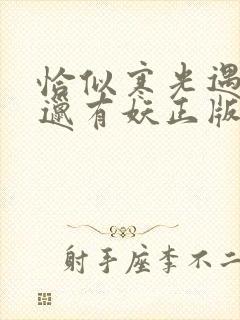 恰似寒光遇
邋有妖正版
射手座李不二